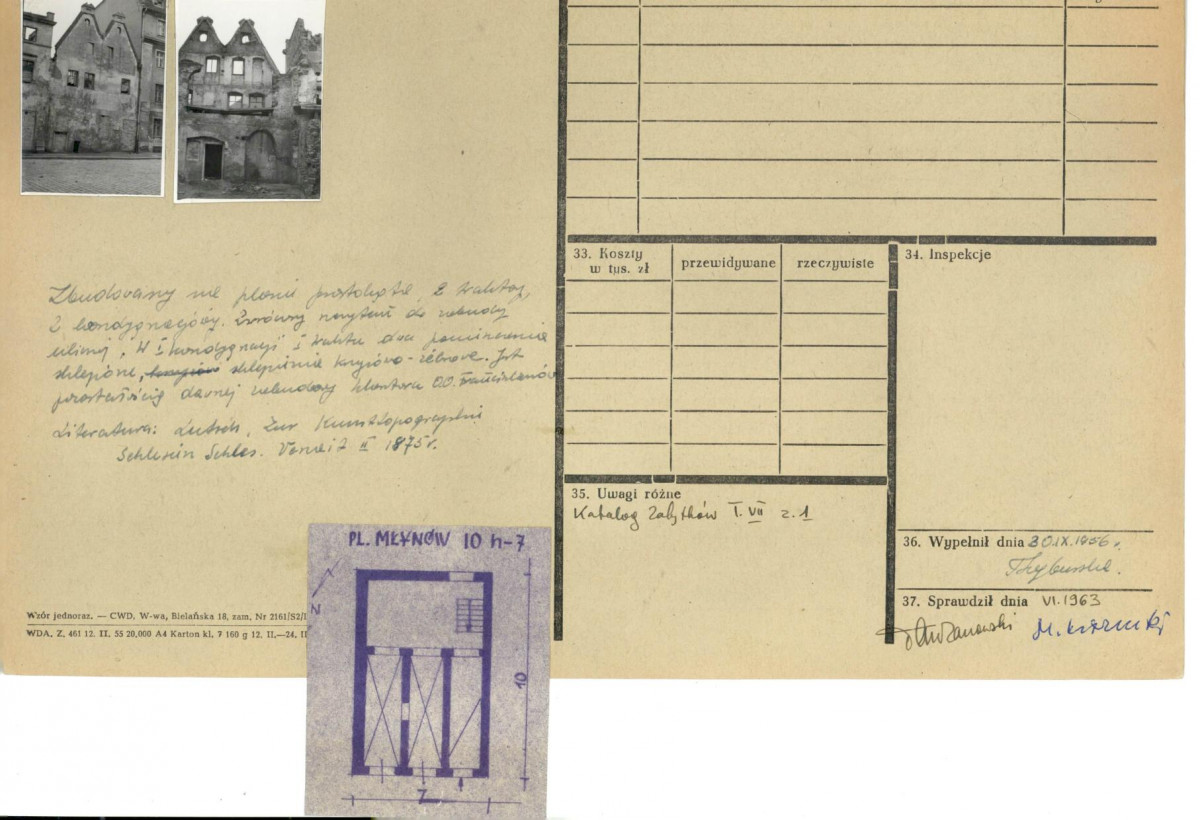 33. Koszty
w tys. zł
przewidywane
rzeczywiste
34. Inspekcje
Zbudowany na planie prostokąta, 2 traktowy,
2 kondygnacjowy. Zwrócony szczytem do
ulicy. W I kondygnacji I traktu dwa pomieszczenia
sklepione, sklepienie krzyżowo-żebrowe. Jest
pozostałością dawnej zabudowy klasztoru OO. Franciszkanów
Literatura: Lutsch, Zur Kunsttopographie
Schlesien Schles. II 1875 r.
35. Uwagi różne
Katalog Zabytków T. VII z. 1
36. Wypełnił dnia 30.IX.1956 r.
37. Sprawdził dnia VI.1963
PL. MŁYNÓW 10 h-7
N
10
7
Wzór jednoraz. — CWD, W-wa, Bielańska 18, zam. Nr 2161/S2/
WDA, Z. 461 12. II. 55 20,000 A4 Karton kl. 7 160 g 12. II.—24. II